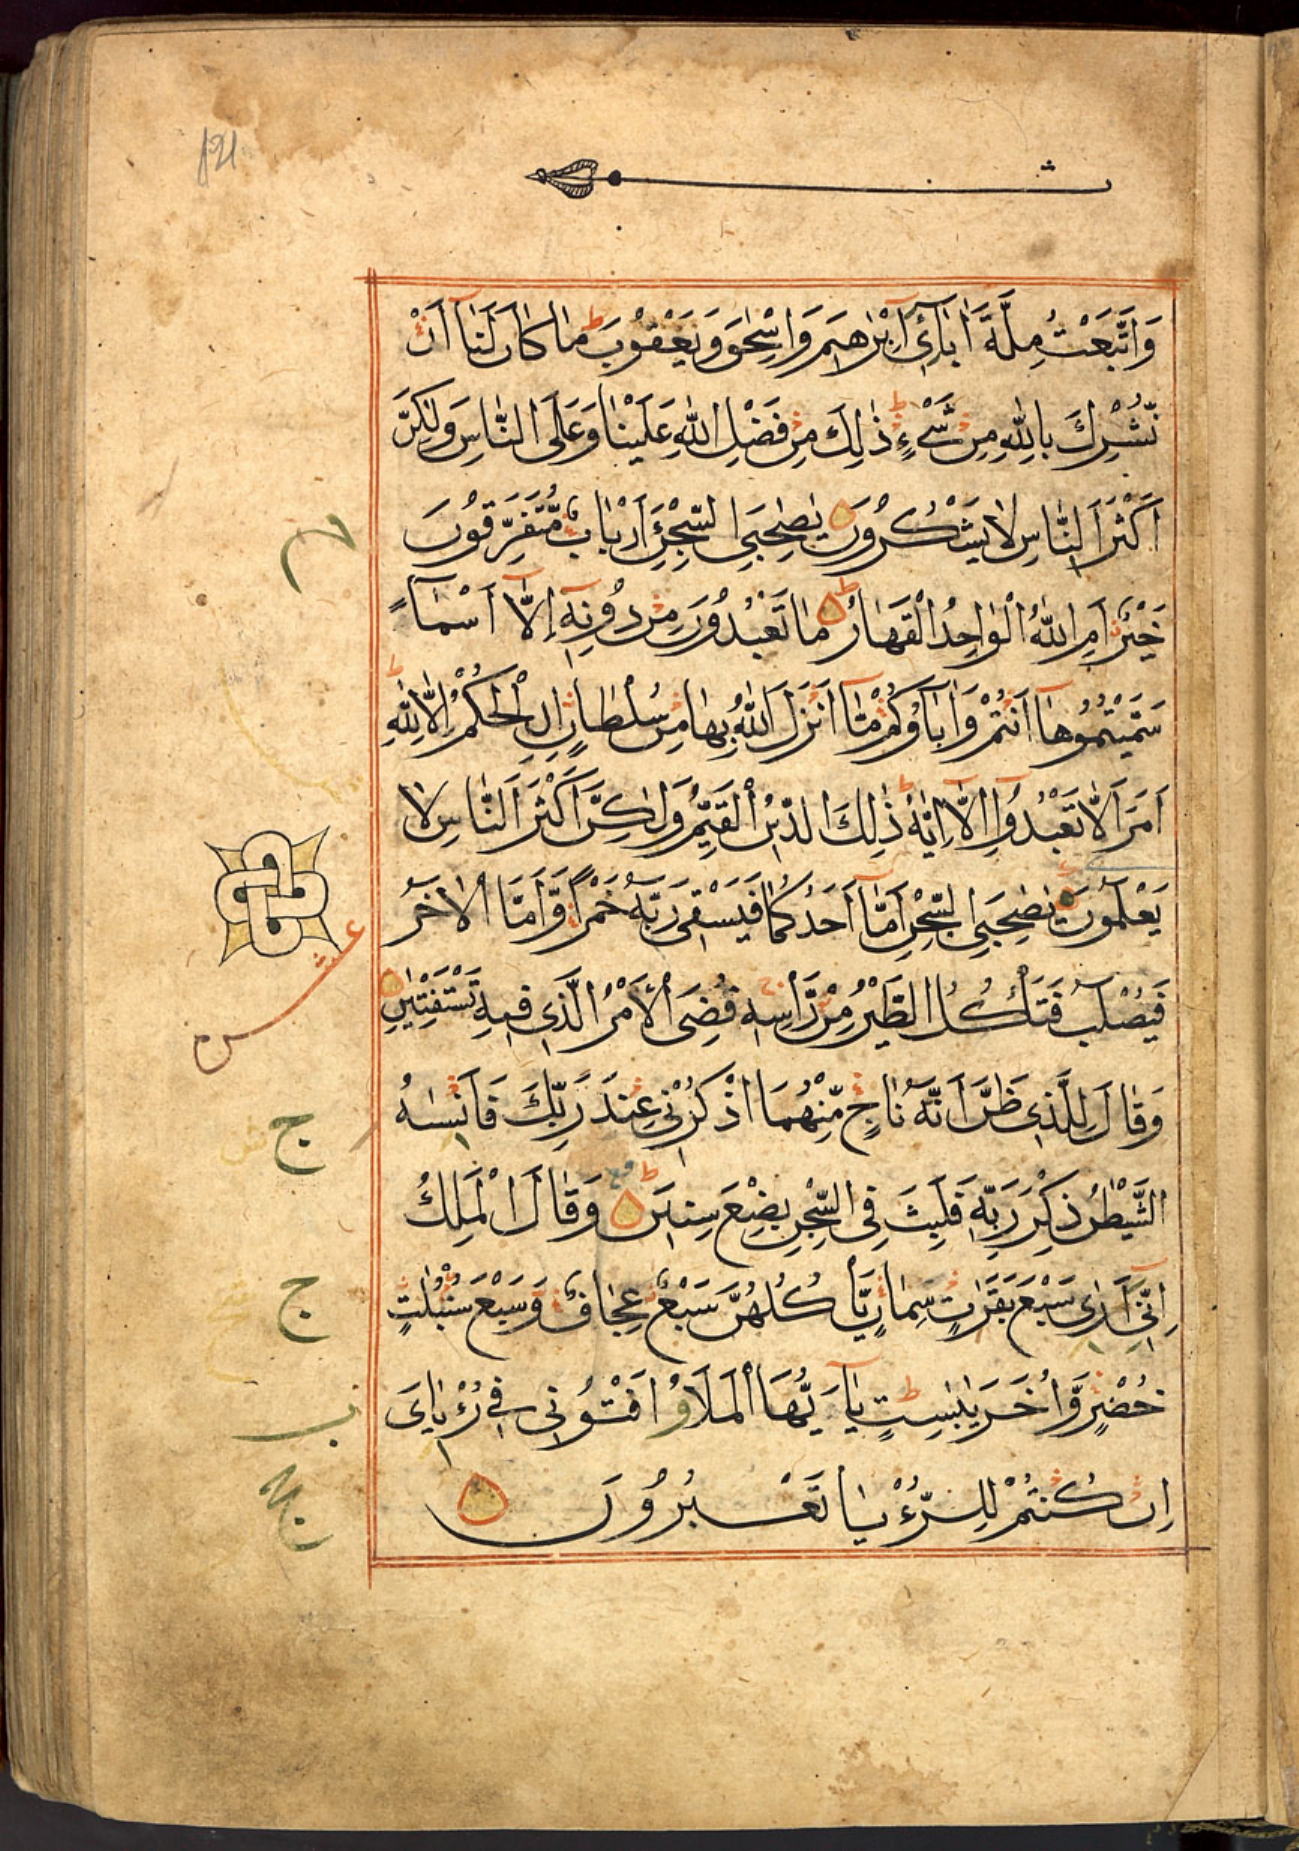 وَاتَّبَعْتُ مِلَّةَ اٰبَآئِ اِبْرٰهِيمَ وَاِسْحٰقَ وَيَعْقُوْبَ ط مَا كَانَ لَنَآ اَنْ
نُّشْرِكَ بِاللّٰهِ مِنْ شَيْءٍ ط ذٰلِكَ مِنْ فَضْلِ اللّٰهِ عَلَيْنَا وَعَلَى النَّاسِ وَلٰكِنَّ
اَكْثَرَ النَّاسِ لَا يَشْكُرُوْنَ يٰصٰحِبَيِ السِّجْنِ ءَاَرْبَابٌ مُّتَفَرِّقُوْنَ
خَيْرٌ اَمِ اللّٰهُ الْوَاحِدُ الْقَهَّارُ ط مَا تَعْبُدُوْنَ مِنْ دُوْنِهٖٓ اِلَّآ اَسْمَآءً
سَمَّيْتُمُوْهَآ اَنْتُمْ وَاٰبَاؤُكُمْ مَّآ اَنْزَلَ اللّٰهُ بِهَا مِنْ سُلْطَانٍ اِنِ الْحُكْمُ اِلَّا لِلّٰهِ ط
اَمَرَ اَلَّا تَعْبُدُوْٓا اِلَّآ اِيَّاهُ ط ذٰلِكَ الدِّيْنُ الْقَيِّمُ وَلٰكِنَّ اَكْثَرَ النَّاسِ لَا
يَعْلَمُوْنَ يٰصٰحِبَيِ السِّجْنِ اَمَّآ اَحَدُكُمَا فَيَسْقِيْ رَبَّهٗ خَمْرًا وَّاَمَّا الْاٰخَرُ
فَيُصْلَبُ فَتَأْكُلُ الطَّيْرُ مِنْ رَّاْسِهٖ قُضِيَ الْاَمْرُ الَّذِيْ فِيْهِ تَسْتَفْتِيٰنِ
وَقَالَ لِلَّذِيْ ظَنَّ اَنَّهٗ نَاجٍ مِّنْهُمَا اذْكُرْنِيْ عِنْدَ رَبِّكَ فَاَنْسٰىهُ
الشَّيْطٰنُ ذِكْرَ رَبِّهٖ فَلَبِثَ فِي السِّجْنِ بِضْعَ سِنِيْنَ ط وَقَالَ الْمَلِكُ
اِنِّيْٓ اَرٰى سَبْعَ بَقَرَاتٍ سِمَانٍ يَّأْكُلُهُنَّ سَبْعٌ عِجَافٌ وَسَبْعَ سُنْبُلٰتٍ
خُضْرٍ وَّاُخَرَ يٰبِسٰتٍ ط يَآ اَيُّهَا الْمَلَاُ اَفْتُوْنِيْ فِيْ رُءْيَايَ
اِنْ كُنْتُمْ لِلرُّءْيَا تَعْبُرُوْنَ
عشر
ج
ج